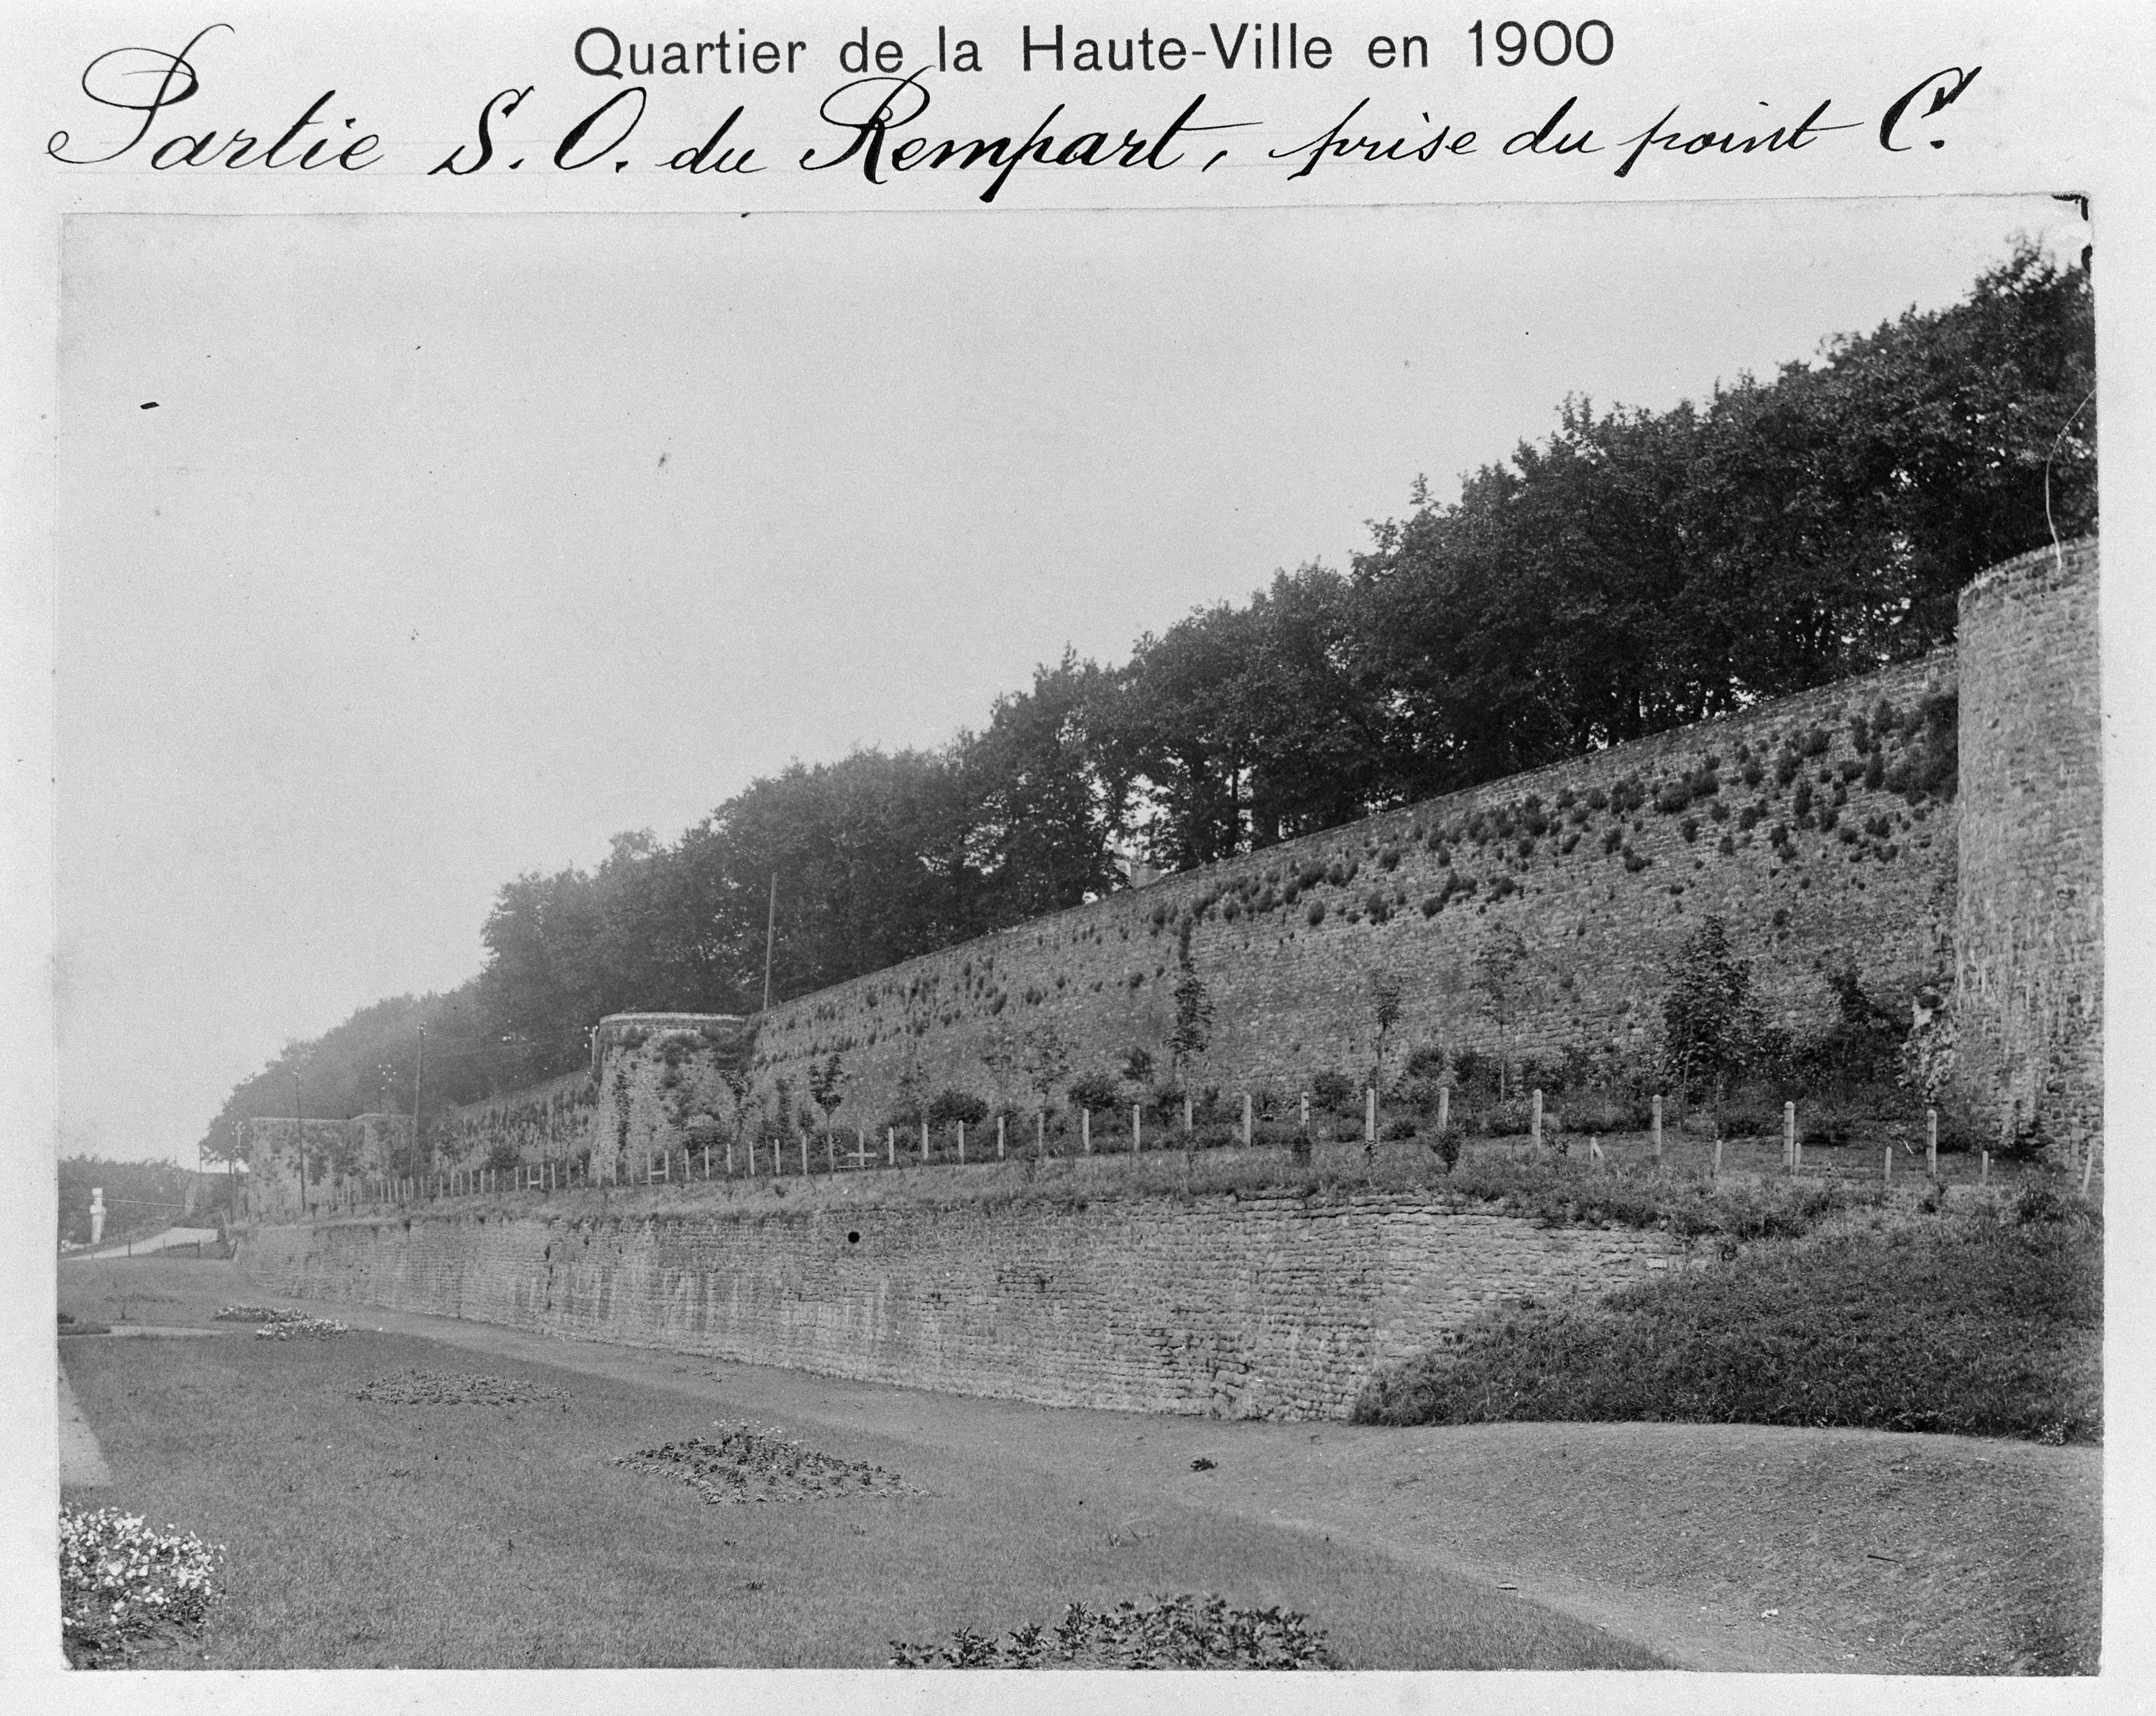 Quartier de la Haute-Ville en 1900
Partie S. O. du Rempart, prise du point C.